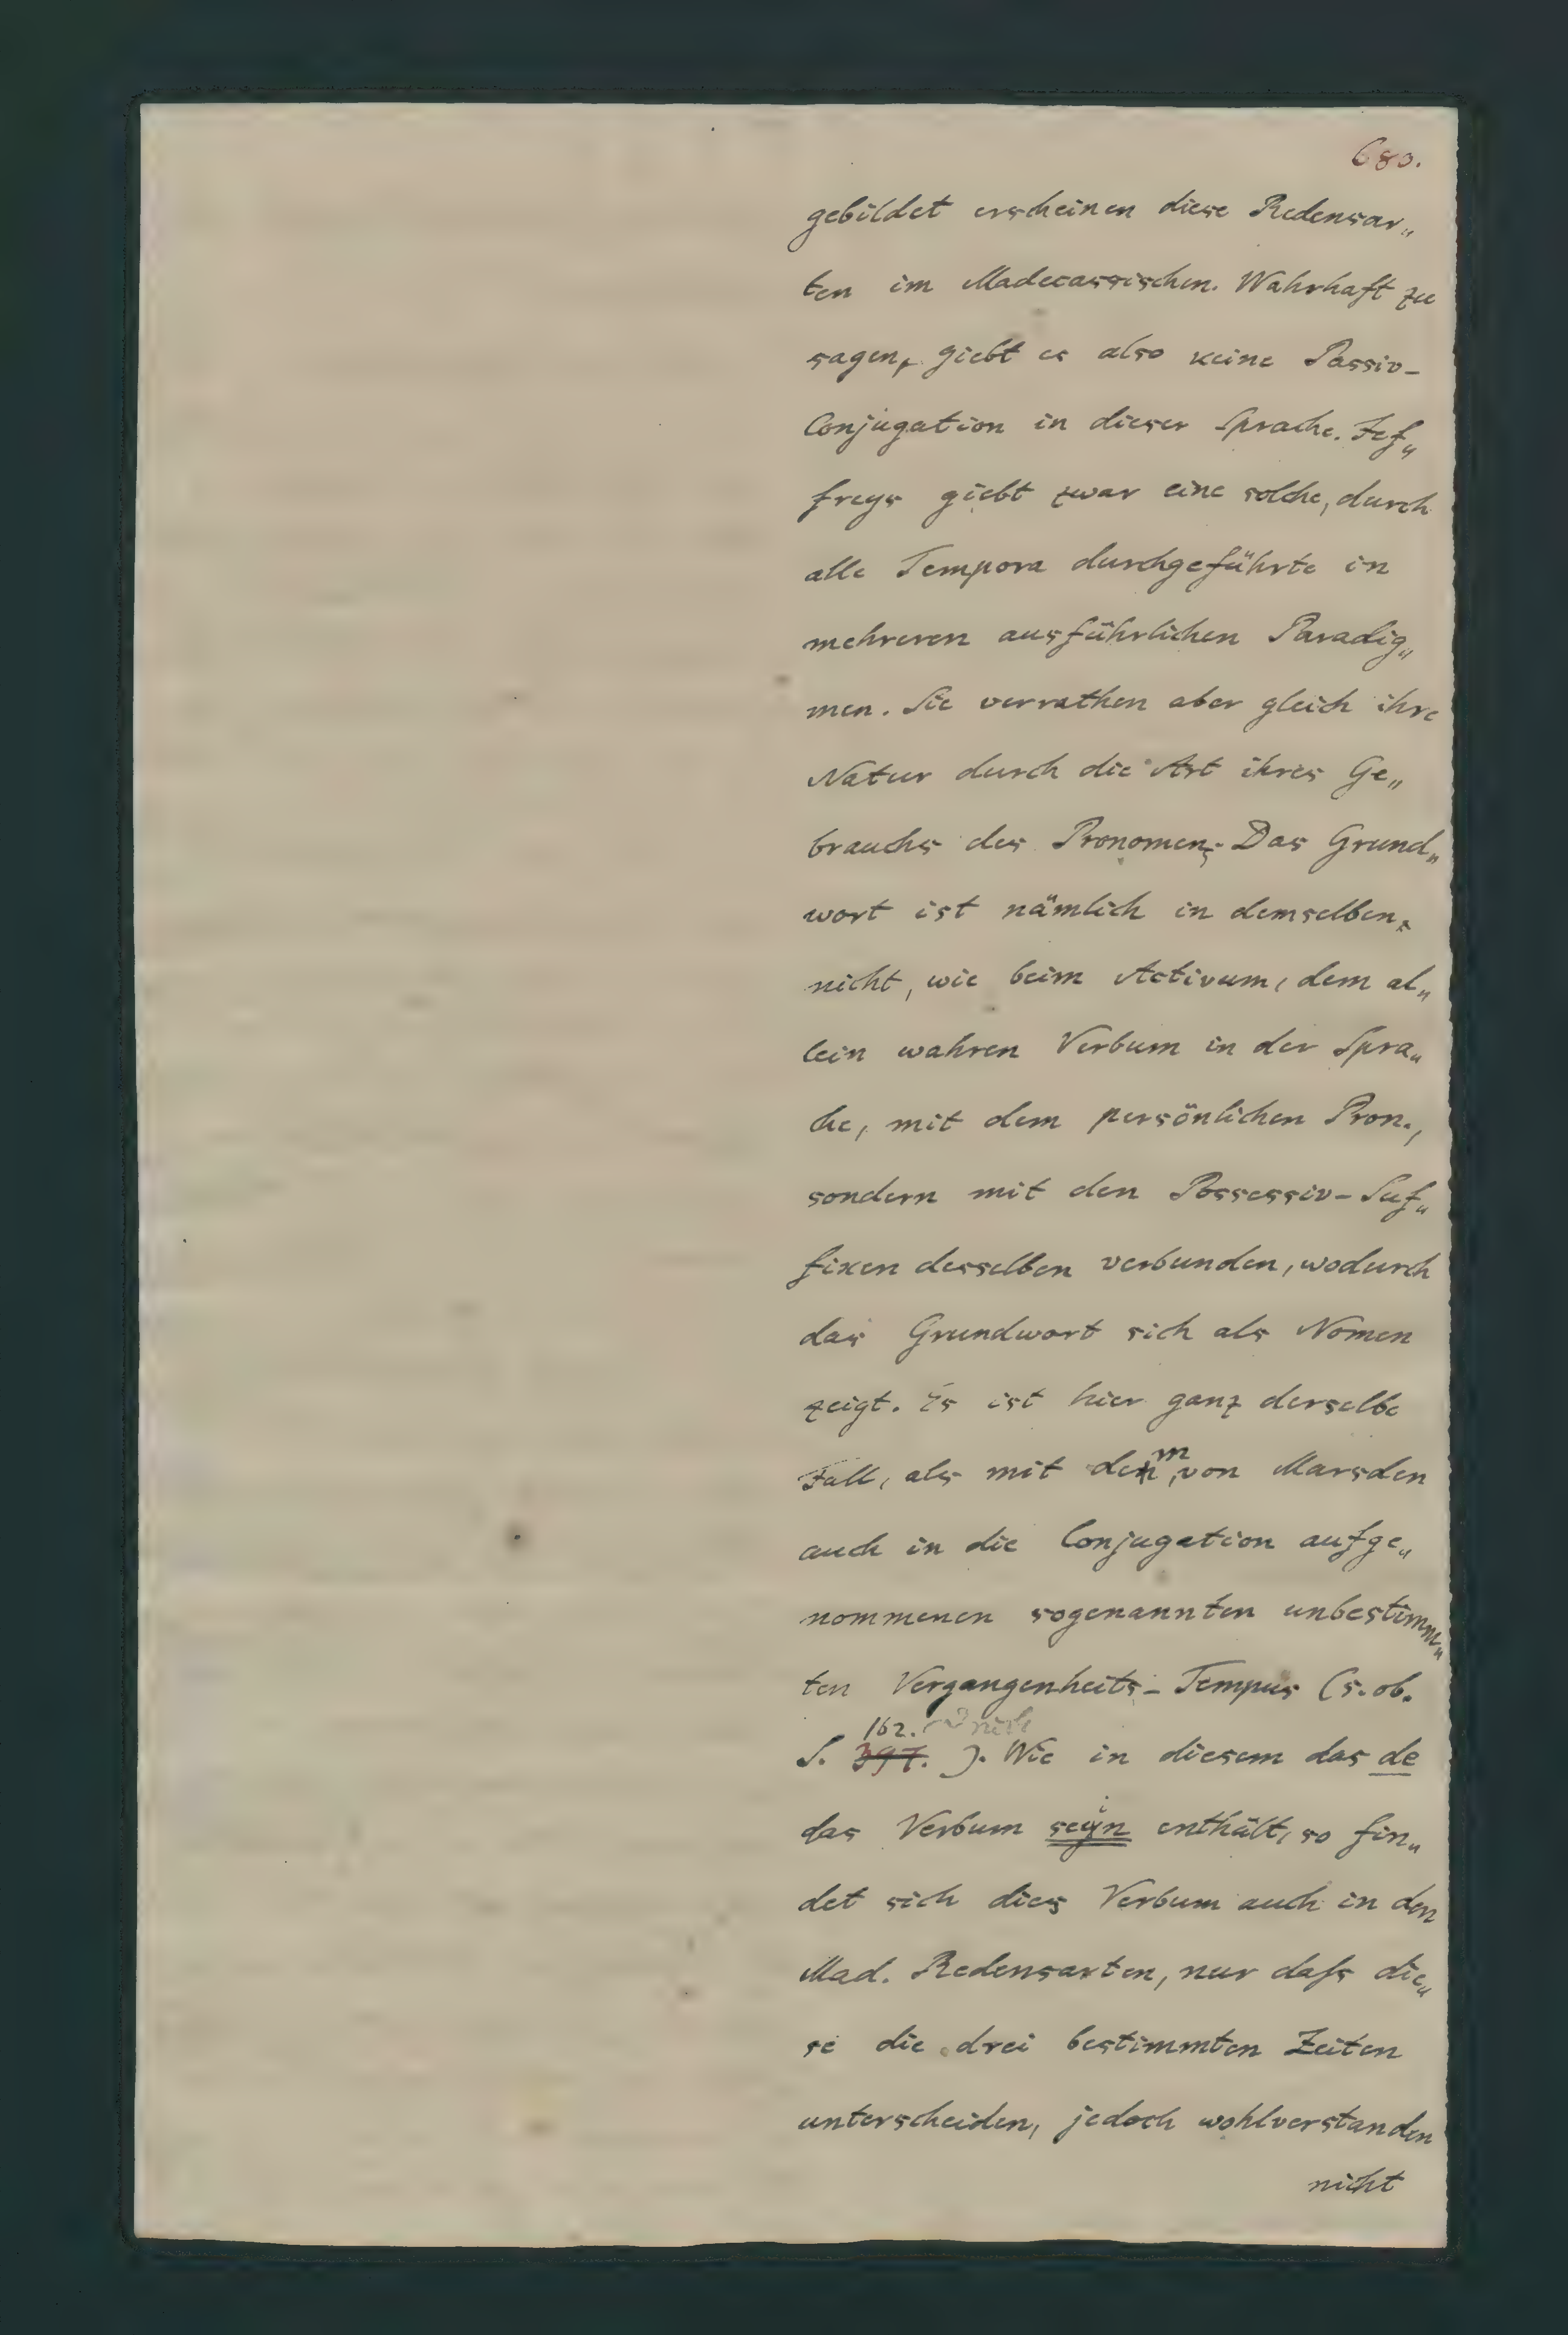 680.
gebildet erscheinen diese Redensar„
ten im Madecassischen. Wahrhaft zu
sagen, giebt es also keine Passiv-
Conjugation in dieser Sprache. Jef„
freys giebt zwar eine solche, durch
alle Tempora durchgeführte in
mehreren ausführlichen Paradig„
men. Sie verrathen aber gleich ihre
Natur durch die Art ihres Ge„
brauchs des Pronomens. Das Grund„
wort ist nämlich in demselben,
nicht, wie beim Activum, dem al„
lein wahren Verbum in der Spra„
che, mit dem persönlichen Pron.,
sondern mit den Possessiv-Suf„
fixen desselben verbunden, wodurch
das Grundwort sich als Nomen
zeigt. Es ist hier ganz derselbe
Fall, als mit dem, von Marsden
auch in die Conjugation aufge„
nommenen sogenannten unbestimm„
ten Vergangenheits-Tempus (s. ob.
162.
S. 397. ). Wie in diesem das de
das Verbum seyn enthält, so fin„
det sich dies Verbum auch in den
Mad. Redensarten, nur daſs die„
se die drei bestimmten Zeiten
unterscheiden, jedoch wohlverstanden
nicht